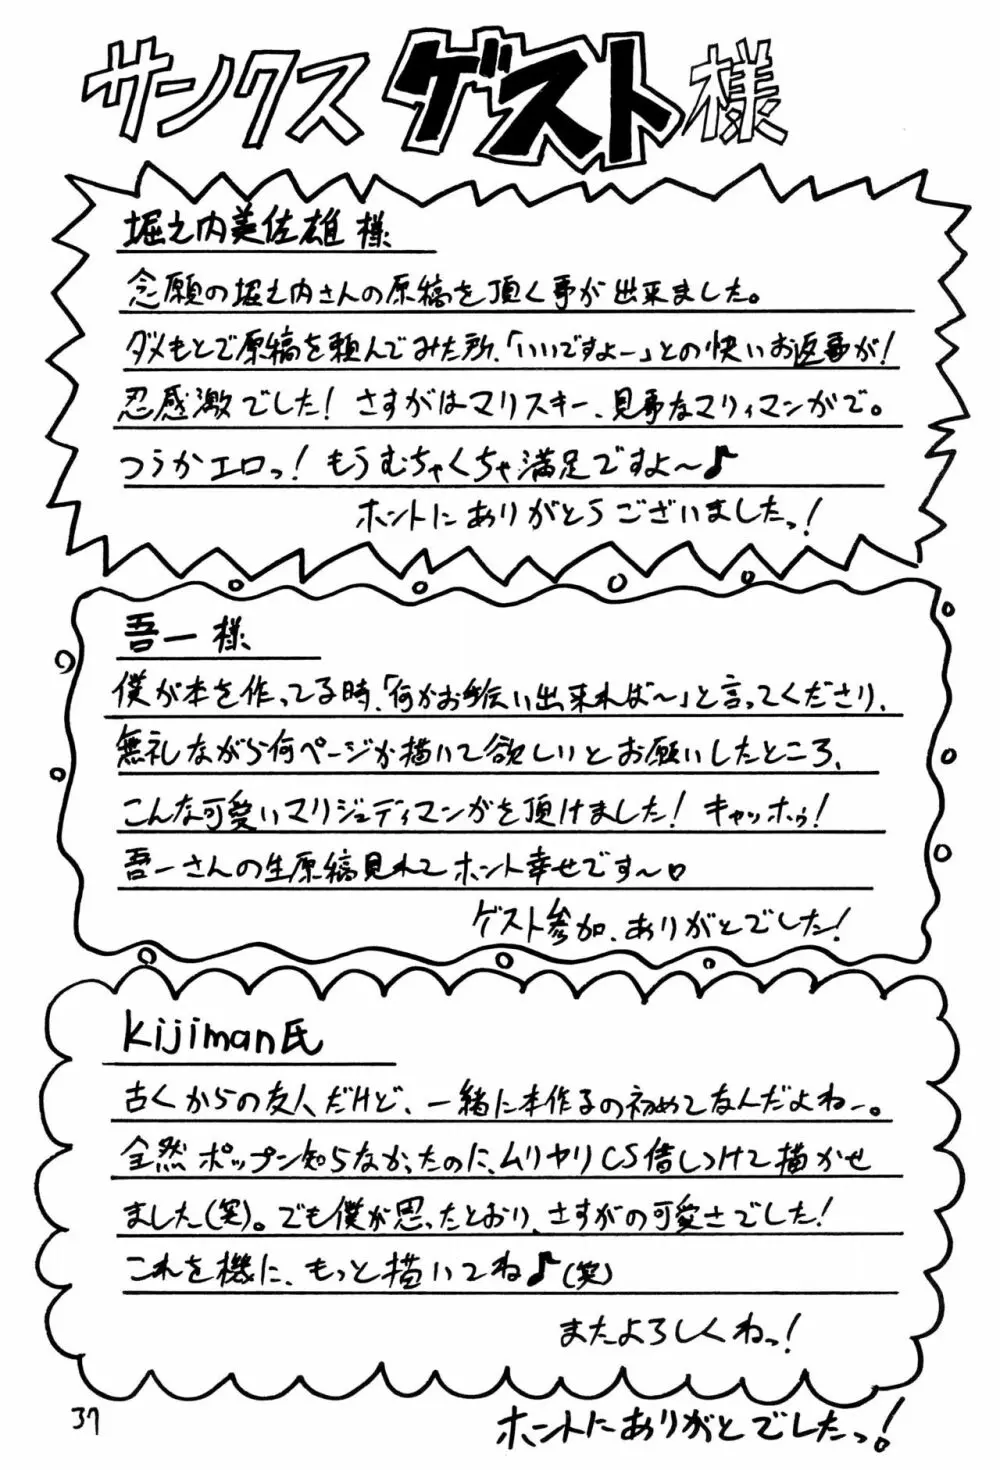 サンクス ゲスト様
堀之内美佐雄 様
念願の堀之内さんの原稿を頂く事が出来ました。
ダメもとで原稿を頼んでみた所、「いいですよー」との快いお返事が!
忍感激でした! さすがはマリスキー、見事なマリィマンがで。
つうかエロっ! もうむちゃくちゃ満足ですよ～♪
ホントにありがとうございましたっ!
吾一 様
僕が本を作ってる時、「何かお手伝い出来れば～」と言ってくださり、
無礼ながら何ページか描いて欲しいとお願いしたところ、
こんな可愛いマリジュディマンがを頂けました! キャッホゥ!
吾一さんの生原稿見れてホント幸せです～♡
ゲスト参加、ありがとでした!
kijiman氏
古くからの友人だけど、一緒に本作るの初めてなんだよねー。
全然ポップン知らなかったのに、ムリヤリCS借しつけて描かせ
ました(笑)。でも僕が思ったとおり、さすがの可愛さでした!
これを機に、もっと描いてね♪(笑)
またよろしくねっ!
37
ホントにありがとでしたっ!